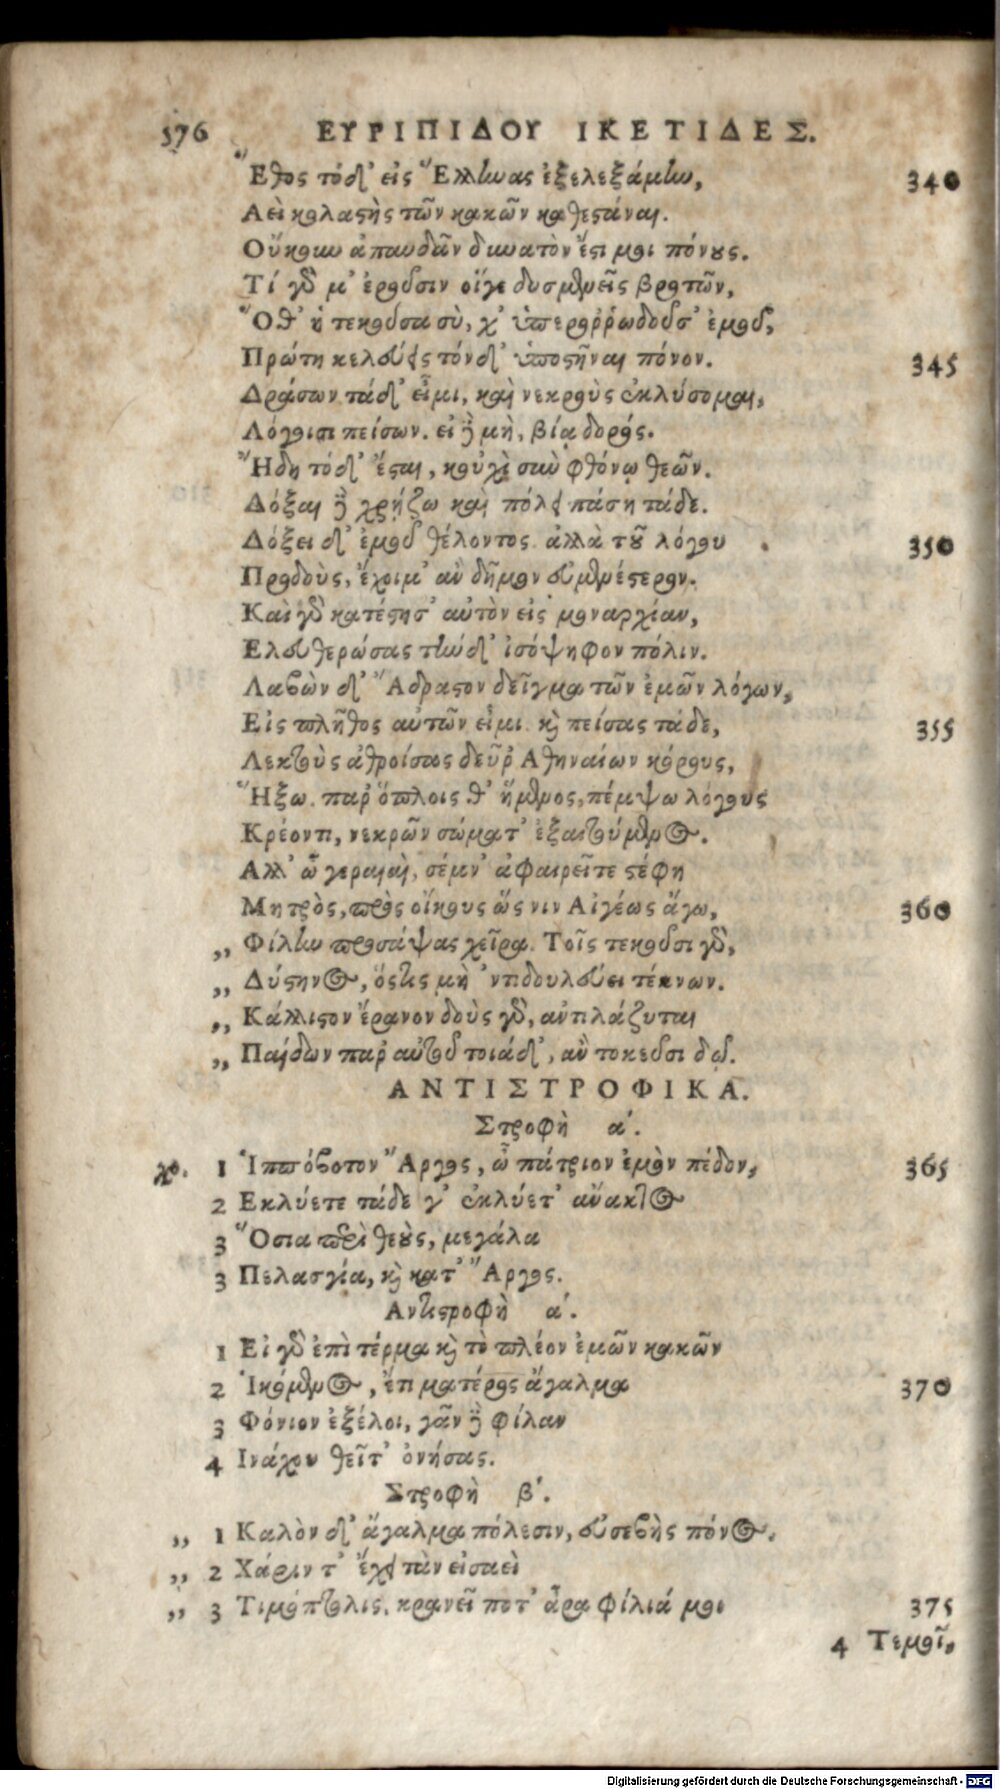 576 ΕΥΡΙΠΙΔΟΥ ΙΚΕΤΙΔΕΣ.
Ἔθος τόδ' εἰς Ἕλληνας ἐξελεξάμην, 340
Αεὶ κολαστὴς τῶν κακῶν καθεστάναι.
Οὔκουν ἀπαυδᾶν δυνατὸν ἔστι μοι πόνους.
Τί γὰρ μ' ἐροῦσιν οἵγε δυσμενεῖς βροτῶν,
Ὅθ' ἡ τεκοῦσα σὺ, χ' ὑπερορρωδοῦσ' ἐμοῦ,
Πρώτη κελεύεις τόνδ' ὑποστῆναι πόνον. 345
Δράσων τάδ' εἶμι, καὶ νεκροὺς ἐκλύσομαι,
Λόγοισι πείσων. εἰ δὲ μὴ, βίᾳ δορός.
Ἤδη τόδ' ἔσται, κοὐχὶ σὺν φθόνῳ θεῶν.
Δόξαι δὲ χρῄζω καὶ πόλει πάσῃ τάδε.
Δόξει δ' ἐμοῦ θέλοντος. ἀλλὰ τοῦ λόγου 350
Προδοὺς, ἔχοιμ' ἂν δῆμον εὐμενέστερον.
Καὶ γὰρ κατέστησ' αὐτὸν εἰς μοναρχίαν,
Ελευθερώσας τήνδ' ἰσόψηφον πόλιν.
Λαβὼν δ' Ἄδραστον δεῖγμα τῶν ἐμῶν λόγων,
Εἰς πλῆθος αὐτῶν εἶμι. καὶ πείσας τάδε, 355
Λεκτοὺς ἀθροίσας δεῦρ' Αθηναίων κόρους,
Ἥξω. παρ' ὅπλοις θ' ἥμενος, πέμψω λόγους
Κρέοντι, νεκρῶν σώματ' ἐξαιτούμενος.
Αλλ' ὦ γεραιαὶ, σέμν' ἀφαιρεῖτε στέφη
Μητρὸς, πρὸς οἴκους ὥς νιν Αἰγέως ἄγω, 360
„ Φίλην προσάψας χεῖρα. Τοῖς τεκοῦσι γὰρ,
„ Δύστηνος, ὅστις μὴ 'ντιδουλεύει τέκνων.
„ Κάλλιστον ἔρανον δοὺς γὰρ, ἀντιλάζυται
„ Παίδων παρ' αὐτοῦ τοιάδ', ἂν τοκεῦσι δῷ.
ΑΝΤΙΣΤΡΟΦΙΚΑ.
Στροφὴ α'.
χο. 1 Ἱππόβοτον Ἄργος, ὦ πάτριον ἐμὸν πέδον, 365
2 Εκλύετε τάδε γ' ἐκλύετ' ἄνακτος
3 Ὅσια περὶ θεοὺς, μεγάλα
3 Πελασγία, καὶ κατ' Ἄργος.
Αντιστροφὴ α'.
1 Εἰ γὰρ ἐπὶ τέρμα καὶ τὸ πλέον ἐμῶν κακῶν
2 Ἱκόμενος, ἔτι ματέρος ἄγαλμα 370
3 Φόνιον ἐξέλοι, γᾶν δὲ φίλαν
4 Ινάχου θεῖτ' ὀνήσας.
Στροφὴ β'.
„ 1 Καλὸν δ' ἄγαλμα πόλεσιν, εὐσεβὴς πόνος.
„ 2 Χάριν τ' ἔχει τὰν εἰσαεὶ
„ 3 Τιμόπτολις. κρανεῖ ποτ' ἆρα φίλιά μοι 375
4 Τεμοῖ,
Digitalisierung gefördert durch die Deutsche Forschungsgemeinschaft - DFG